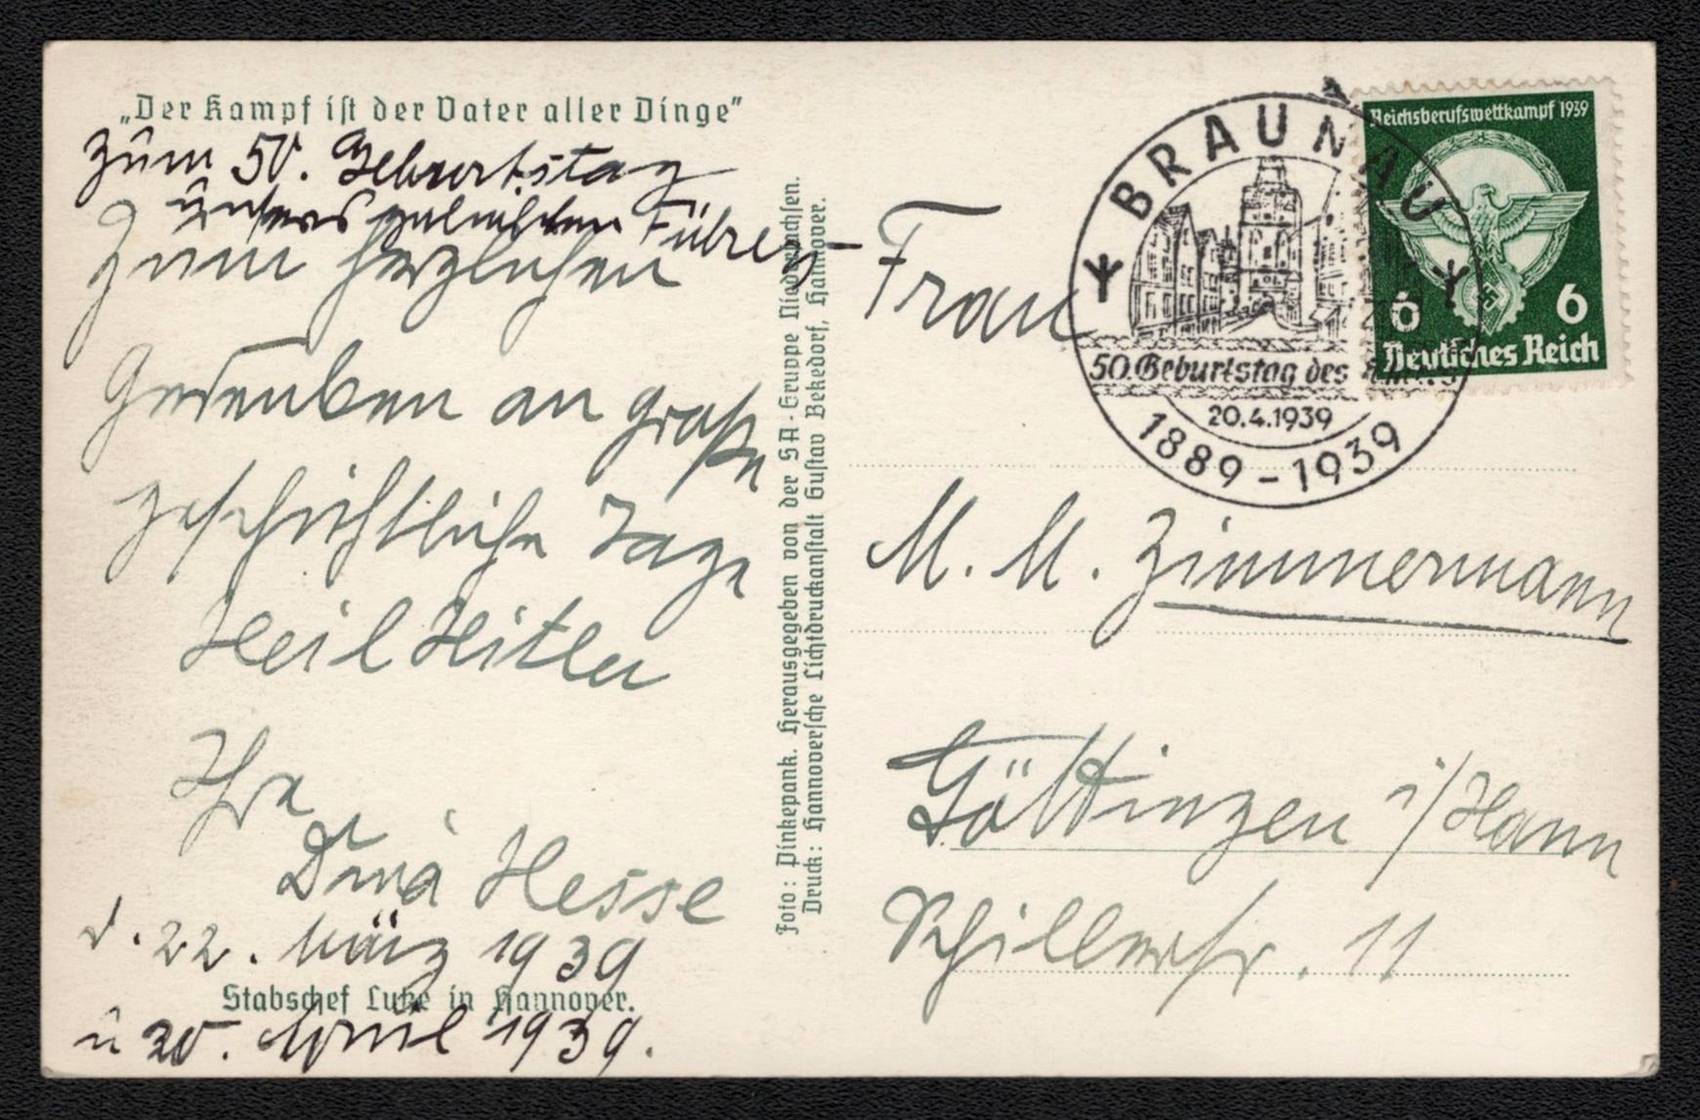 „Der Kampf ist der Vater aller Dinge“
Zum 50. Geburtstag
unsers geliebten Führers
Zum herzlichen
Gedenken an große
geschichtliche Tage
Heil Hitler
Ihre
Hesse
d. 22. März 1939
Stabschef Lutze in Hannover.
u 20. April 1939.
Foto: Pinkepank. Herausgegeben von der SA-Gruppe Niedersachsen.
Druck: Hannoversche Lichtdruckanstalt Gustav Bekedorf, Hannover.
BRAUNAU
50. Geburtstag des
20.4.1939
1889-1939
Reichsberufswettkampf 1939
6 6
Deutsches Reich
Frau
M. M. Zimmermann
Göttingen i/Hann
Schillerstr. 11